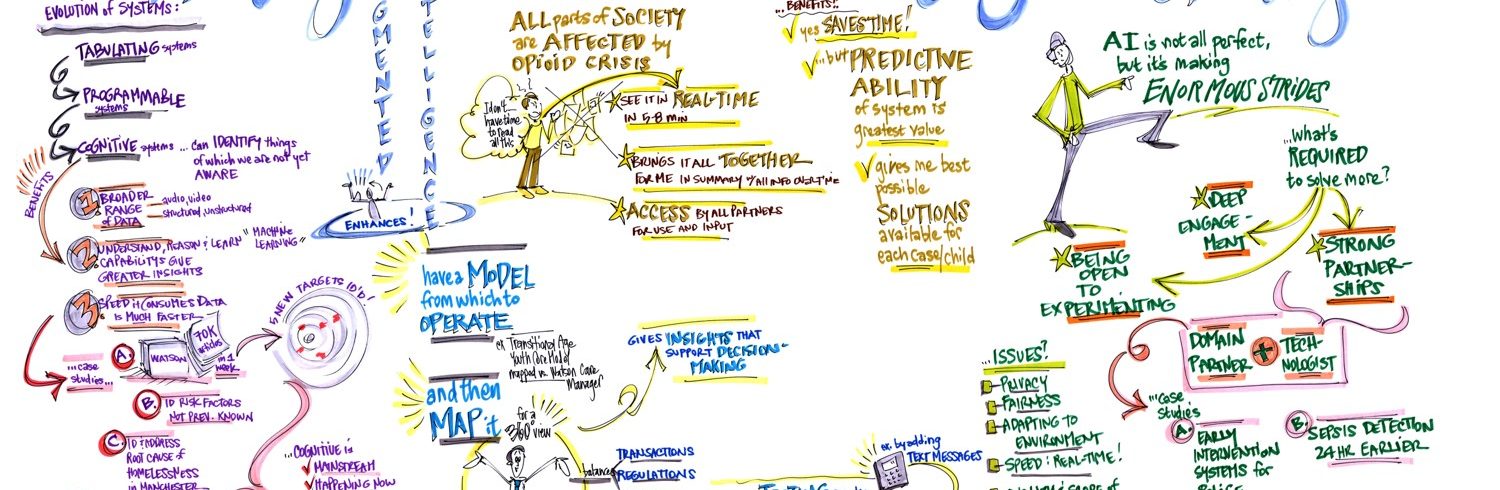 EVOLUTION of SYSTEMS:
TABULATING systems
PROGRAMMABLE
systems
COGNITIVE systems ... can IDENTIFY things
of which we are not yet
AWARE
BENEFITS
1 BROADER
RANGE
of DATA
audio, video
structured, unstructured
2 UNDERSTAND, REASON & LEARN "MACHINE
LEARNING"
CAPABILITYS GIVE
GREATER INSIGHTS
3 SPEED it CONSUMES DATA
IS MUCH FASTER
...case
studies...
A.
WATSON
70K
articles
in 1
week
5 NEW TARGETS ID'D!
B. ID RISK FACTORS
NOT PREV. KNOWN
C. ID & ADDRESS
ROOT CAUSE of
HOMELESSNESS
IN MANCHESTER
...COGNITIVE is
MAINSTREAM
HAPPENING NOW
GMENTED
TELLIGENCE
ENHANCES!
have a MODEL
from which to
OPERATE
ex Transitional Age
Youth Care Model
mapped vs. Watson Care
Manager
and then
MAP it
for a
360° view
balances
TRANSACTIONS
REGULATIONS
GIVES INSIGHTS THAT
SUPPORT DECISION-
MAKING
ALL parts of SOCIETY
are AFFECTED by
OPIOID CRISIS
I don't
have time
to read
all this
SEE IT IN REAL-TIME
IN 5-8 min
BRINGS IT ALL TOGETHER
FOR ME IN SUMMARY w/ALL INFO OVERTIME
ACCESS BY ALL PARTNERS
FOR USE AND INPUT
...BENEFITS!!
yes SAVES TIME!
...but PREDICTIVE
ABILITY
of system is
greatest value
gives me best
possible
SOLUTIONS
available for
each case/child
ex. by adding
TEXT MESSAGES
AI is not all perfect,
but it's making
ENORMOUS STRIDES
...what's
REQUIRED
to solve more?
DEEP
ENGAGE-
MENT
STRONG
PARTNER-
SHIPS
BEING
OPEN
TO
EXPERIMENTING
DOMAIN
PARTNER
+
TECH-
NOLOGIST
...ISSUES?
PRIVACY
FAIRNESS
ADAPTING TO
ENVIRONMENT
SPEED: REAL-TIME!
...case
studies
A. EARLY
INTERVENTION
SYSTEMS for
POLICE
B. SEPSIS DETECTION
24 HR EARLIER